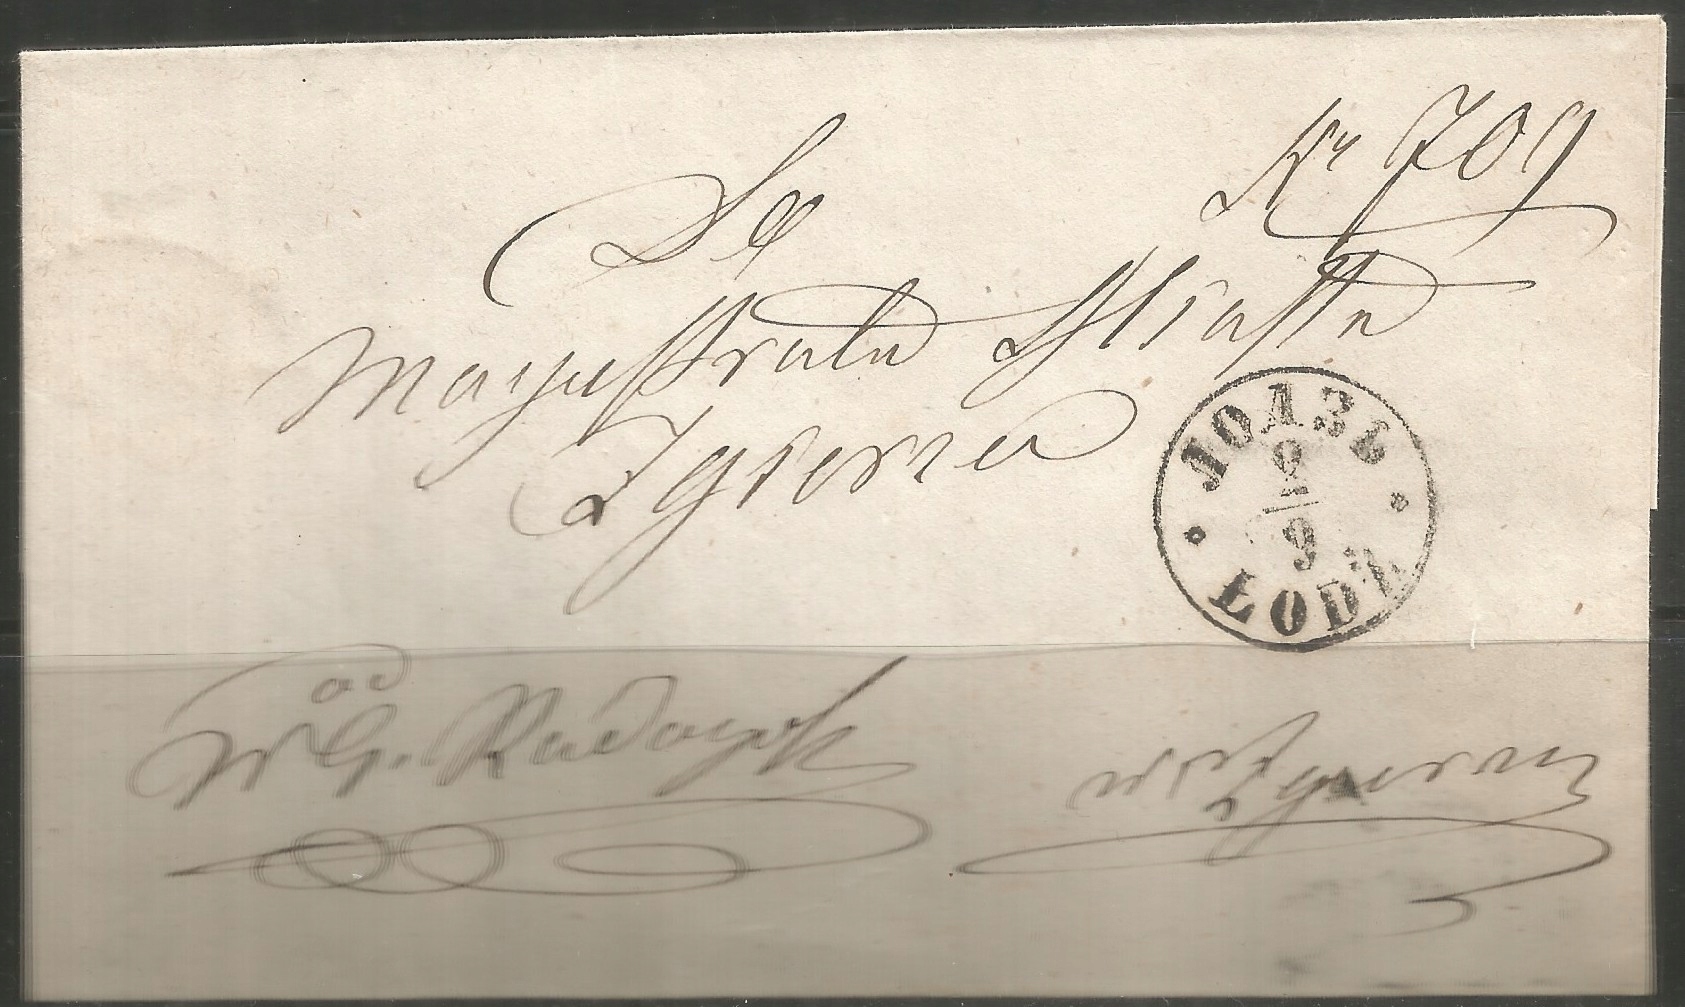 Do
Nr 709
Magistratu Miasta
Zgierza
ЛОДЗЬ
9
ŁODŹ
W G. Radogoszcz
w Zgierzu